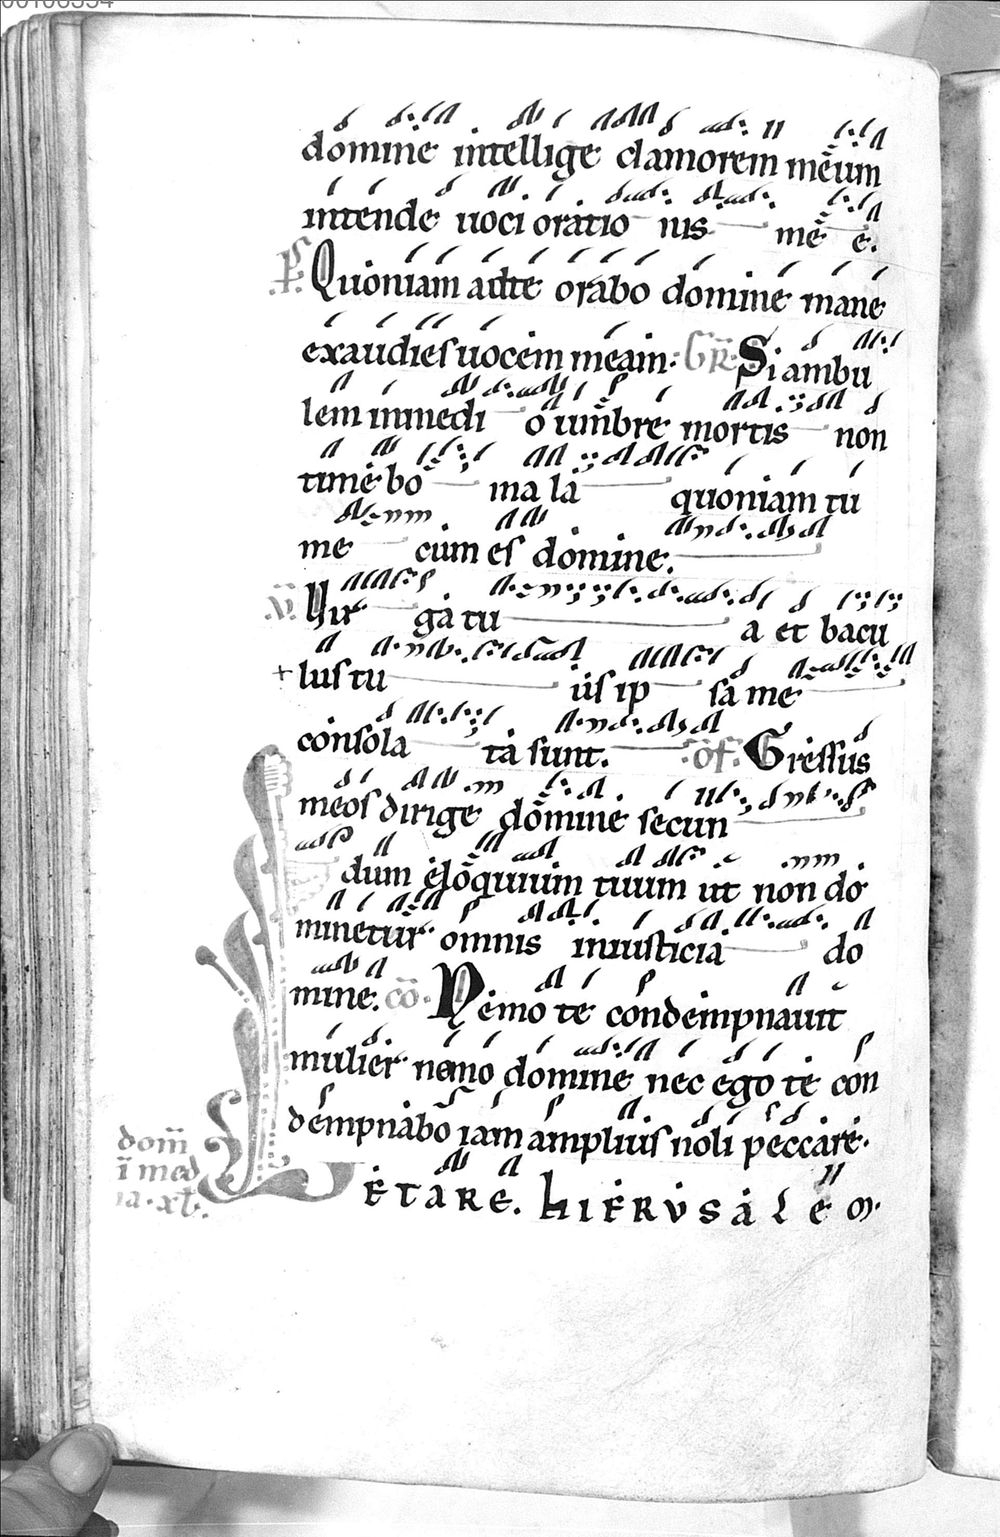 domine intellige clamorem meum
intende uoci oratio nis me e.
Ps. Quoniam ad te orabo domine mane
exaudies uocem meam: GR. Si ambu
lem in medi o umbre mortis non
timebo mala quoniam tu
me cum es domine.
V. Uir ga tu a et bacu
+ lus tu us ip sa me
consola ta sunt. of. Gressus
meos dirige domine secun
dum eloquium tuum ut non do
minetur omnis iniusticia do
mine. co. Nemo te condempnauit
mulier nemo domine nec ego te con
dempnabo iam amplius noli peccare.
dom̄
ī med
ia. xl.
LETARE. hIERUSALEM.